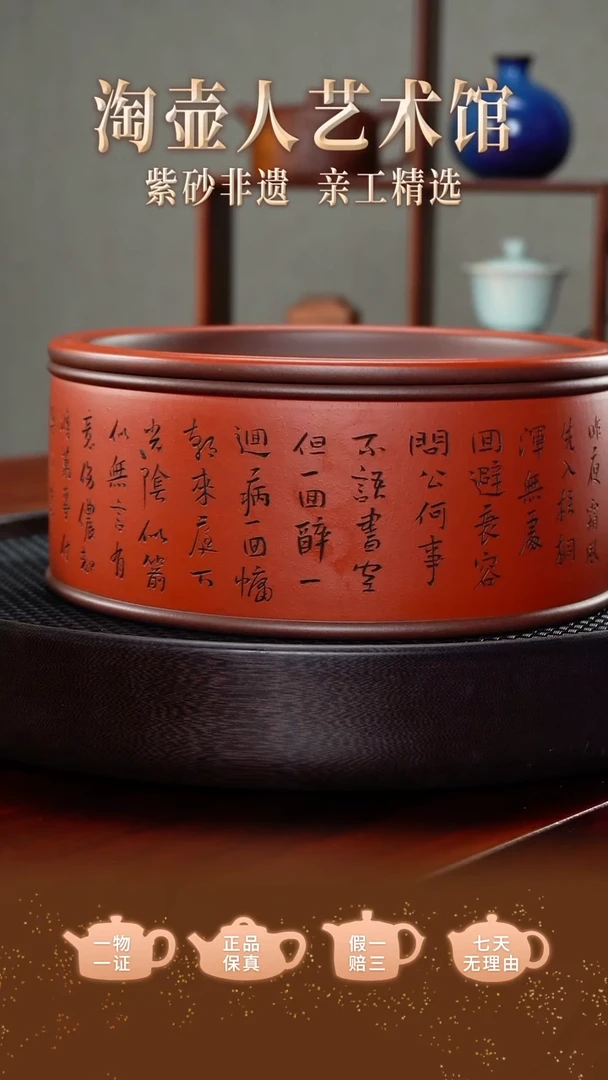 淘壶人艺术馆
紫砂非遗 亲工精选
昨夜霜風
先入梧桐
渾無處
回避衰容
問公何事
不語書空
但一回醉一
迴病一回慵
朝來庭下
光陰似箭
似無言有
意傷儂都
將萬事付
一物
一证
正品
保真
假一
赔三
七天
无理由